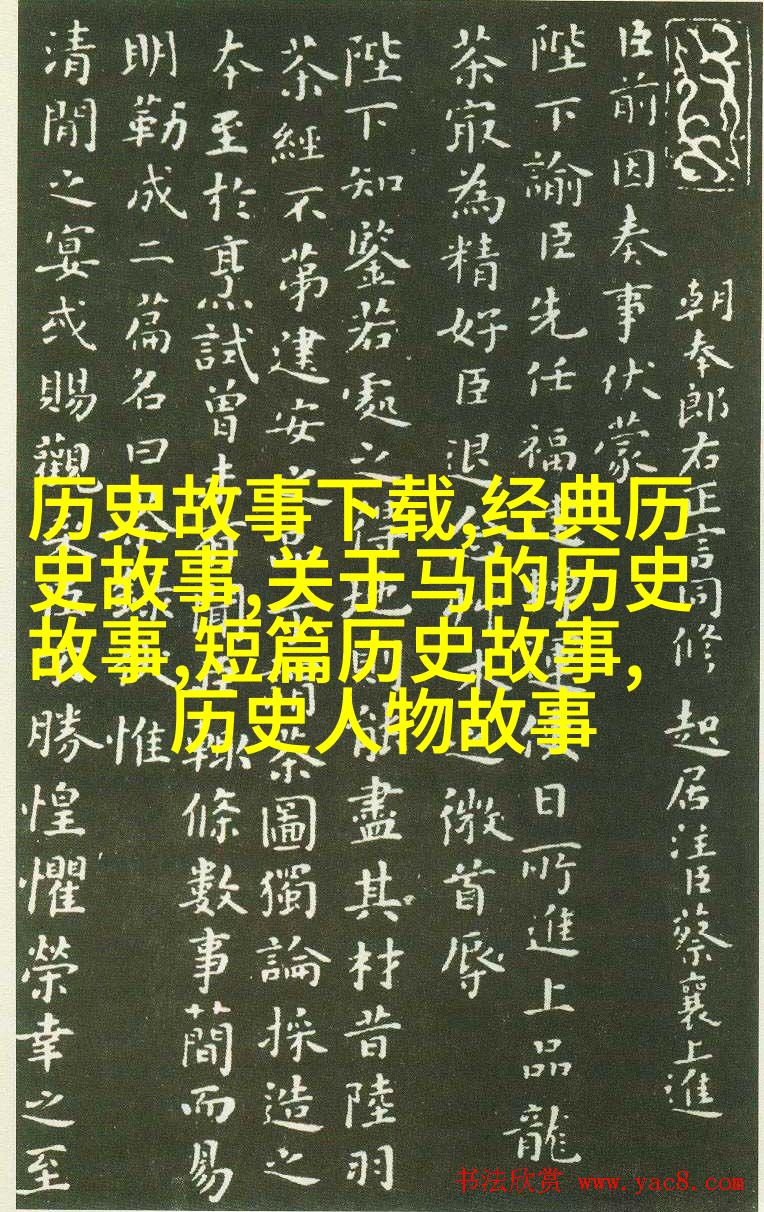 朝奉郎右正言同修起居注臣蔡襄上進
臣前因奏事伏蒙
陛下諭臣先任福建轉運使日所進上品龍
茶最為精好臣退念草木之微首辱
陛下知鑒若處之得地則能盡其材昔陸羽
茶經不第建安之品丁謂茶圖獨論採造之
本至於烹試曾未有聞臣輒條數事簡而易
明勒成二篇名曰茶錄伏惟
清閒之宴或賜觀采臣不勝惶懼榮幸之至
历史故事下载,经典历
史故事,关于马的历史
故事,短篇历史故事,
历史人物故事
书法欣赏 www.yac8.com